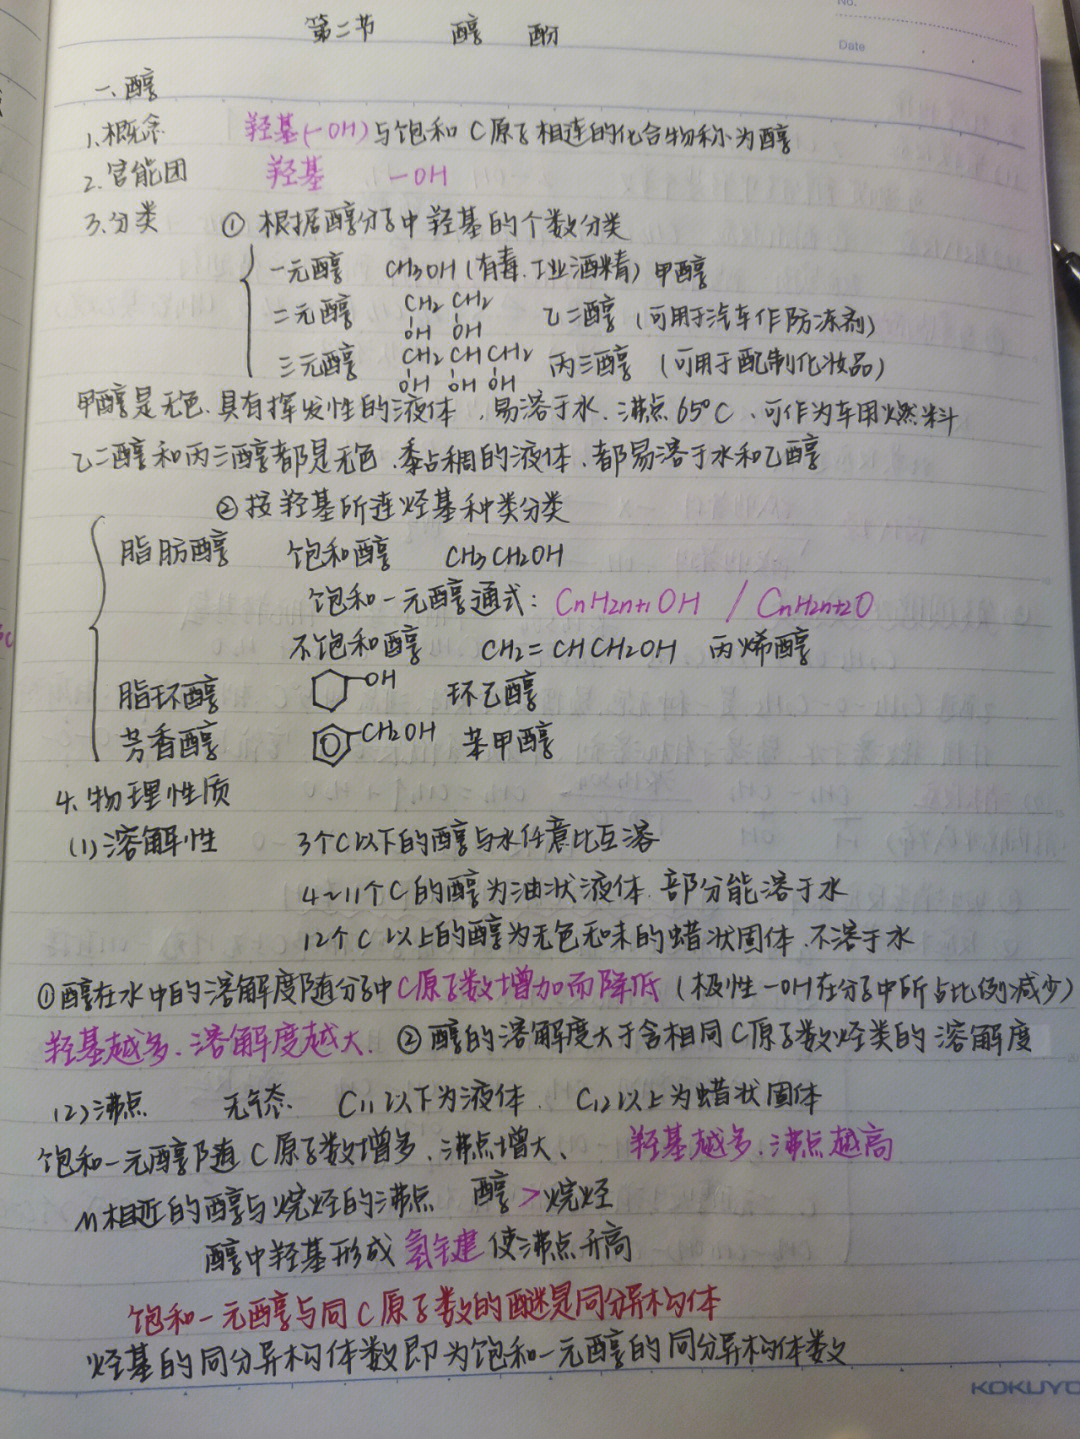 No.
Date
第二节 醇 酚
一、醇
1、概念 羟基(-OH)与饱和C原子相连的化合物称为醇
2、官能团 羟基 -OH
3、分类 ① 根据醇分子中羟基的个数分类
一元醇 CH3OH (有毒、工业酒精) 甲醇
二元醇 CH2 CH2 乙二醇 (可用于汽车作防冻剂)
OH OH
三元醇 CH2 CH CH2 丙三醇 (可用于配制化妆品)
OH OH OH
甲醇是无色、具有挥发性的液体、易溶于水、沸点65°C、可作为车用燃料
乙二醇和丙三醇都是无色、黏稠的液体、都易溶于水和乙醇
② 按羟基所连烃基种类分类
脂肪醇 饱和醇 CH3CH2OH
饱和一元醇通式: CnH2n+1OH / CnH2n+2O
不饱和醇 CH2=CHCH2OH 丙烯醇
脂环醇 OH 环乙醇
芳香醇 CH2OH 苯甲醇
4、物理性质
(1)溶解性 3个C以下的醇与水任意比互溶
4~11个C的醇为油状液体、部分能溶于水
12个C以上的醇为无色无味的蜡状固体、不溶于水
①醇在水中的溶解度随分子中C原子数增加而降低 (极性-OH在分子中所占比例减少)
羟基越多、溶解度越大. ② 醇的溶解度大于含相同C原子数烃类的溶解度
(2)沸点 无气态 C11以下为液体、 C12以上为蜡状固体
饱和一元醇随C原子数增多、沸点增大、 羟基越多、沸点越高
M相近的醇与烷烃的沸点 醇 > 烷烃
醇中羟基形成氢键使沸点升高
饱和一元醇与同C原子数的醚是同分异构体
烃基的同分异构体数即为饱和一元醇的同分异构体数
KOKUYO